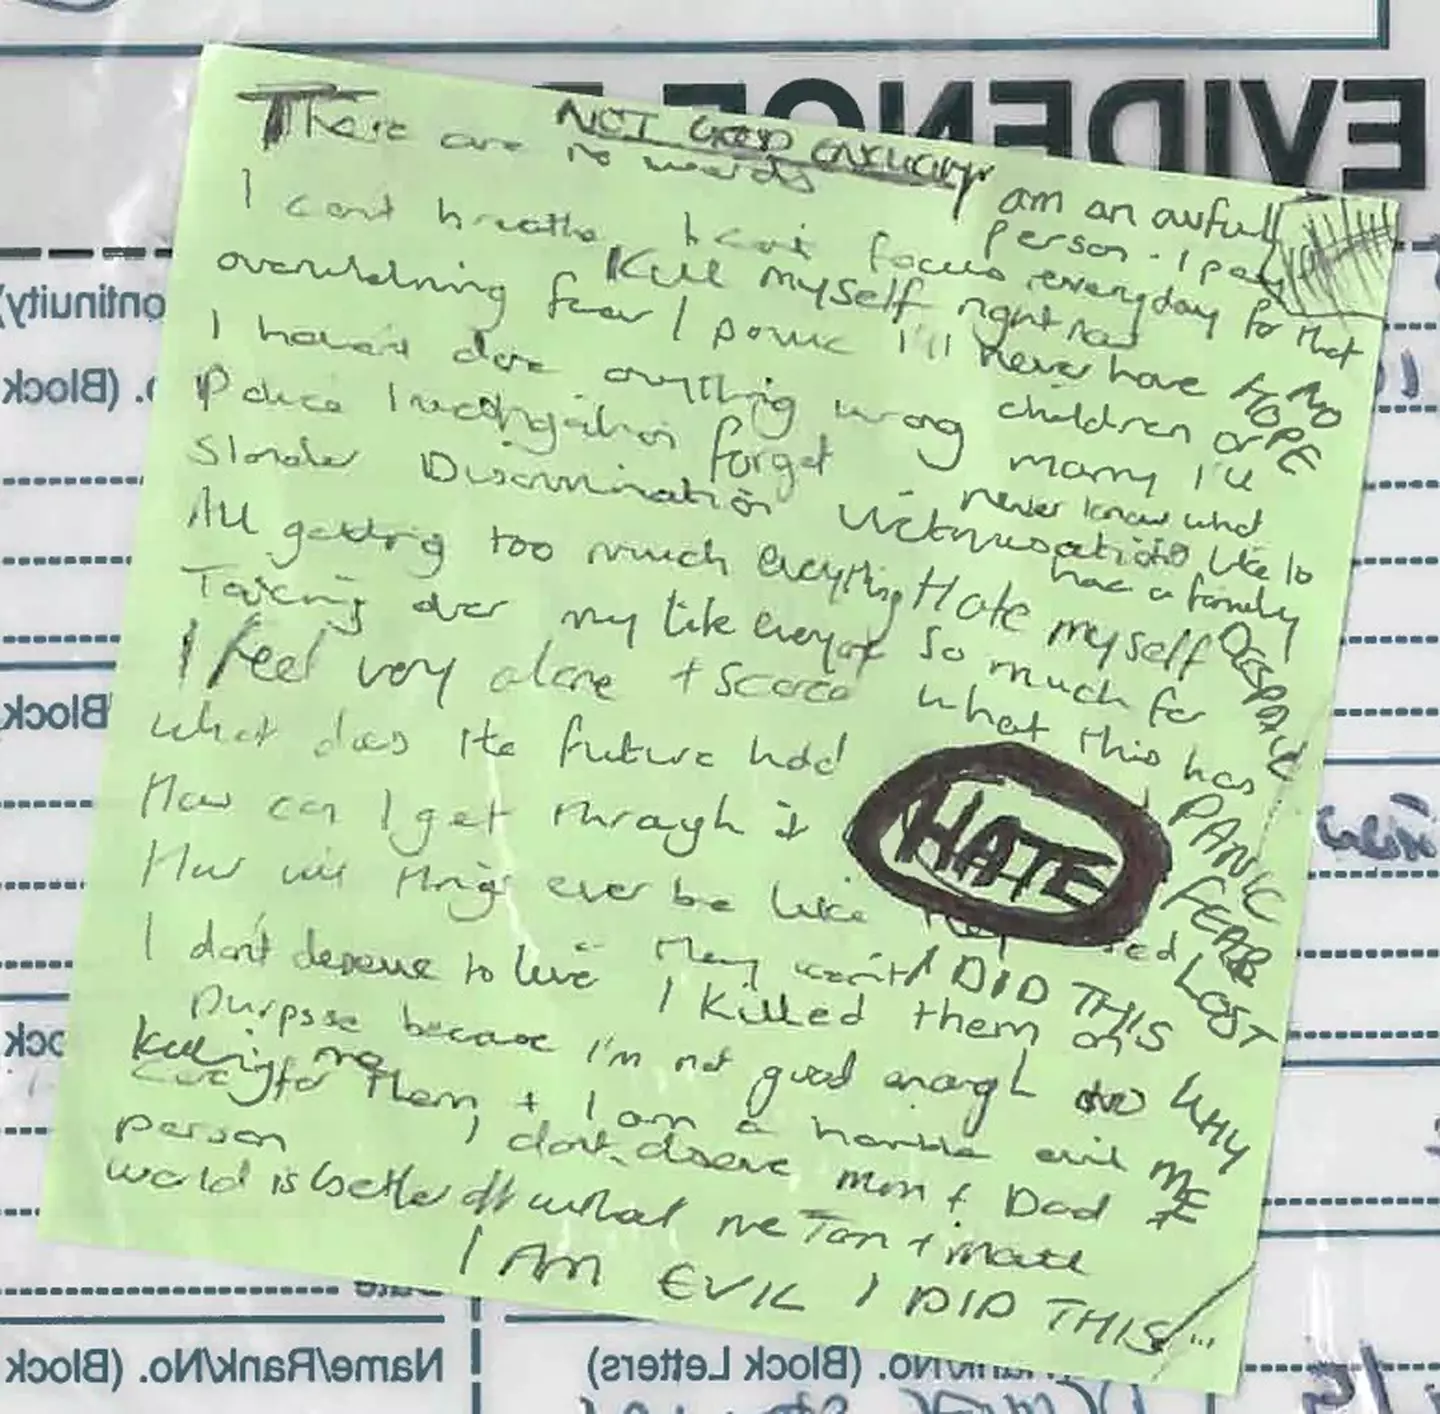 There are no words
NOT GOOD ENOUGH
I can't breathe I can't focus
overwhelming fear / panic
Kill myself right now
I am an awful person. I pay
everyday for that
I'll never have
children or
marry I'll
never know what
like to
have a family
NO
HOPE
I haven't done anything wrong
Police Investigation forget
Slander Discrimination Victimisation
All getting too much everything
Taking over my life everyone
Hate myself
so much for
what this has
DESPAIR
PANIC
FEAR
LOST
I feel very alone + scared
what does the future hold
How can I get through it
HATE
How will things ever be like
I don't deserve to live They
I DID THIS
I killed them on
purpose because I'm not good enough to
care for them + I am a horrible evil
person
killing me
WHY
ME
I don't deserve Mum + Dad
world is better off what me
I AM EVIL I DID THIS...
EVIDEN
Name/Rank/No. (Block
ank/No. (Block Letters)
ontinuity)
o. (Block